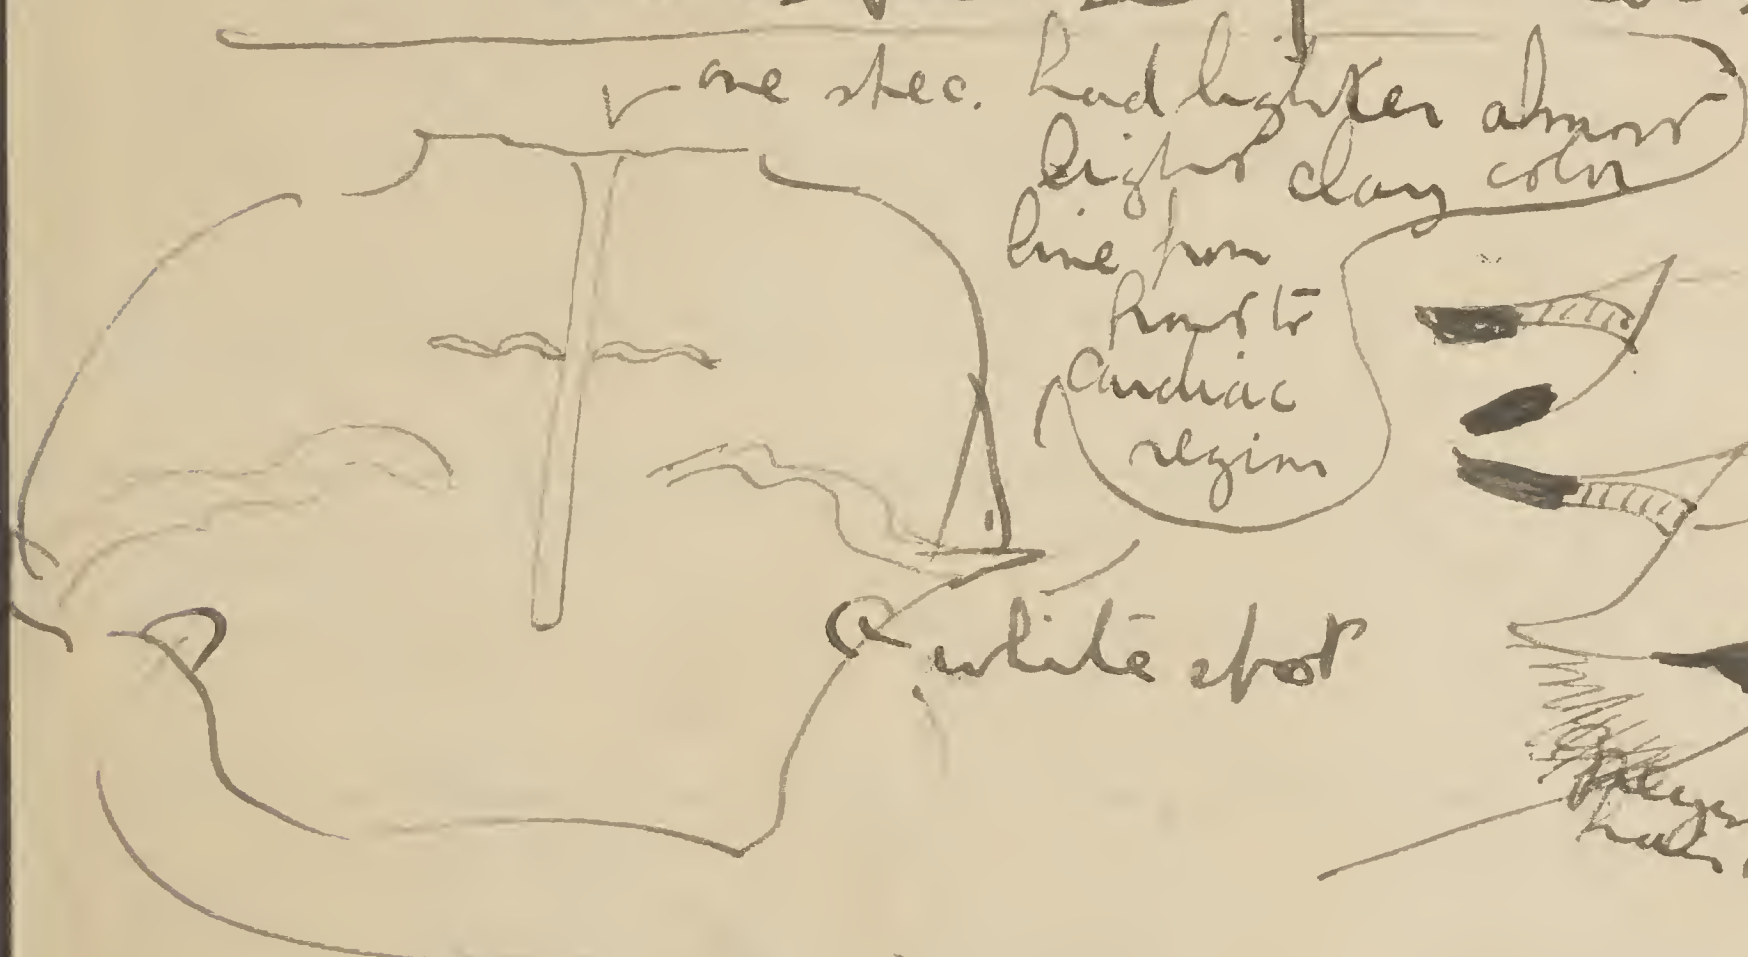 one spec. had lighter almost
light clay color
line from
front to
cardiac
region
white spot
hairs